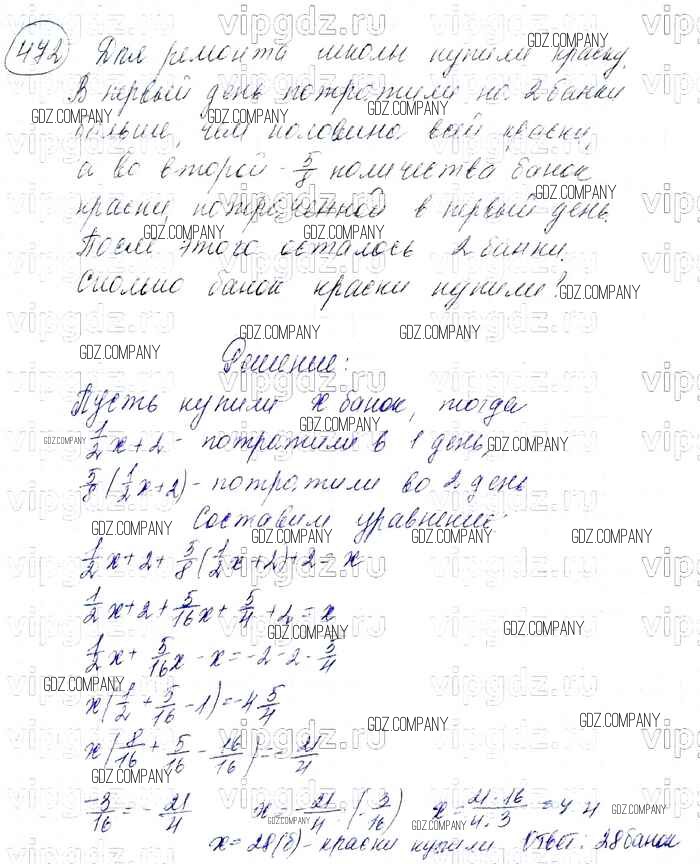 472 Для ремонта школы купили краску.
В первый день потратили на 2 банки
больше, чем половина всей краски,
а во второй - 5/8 количества банок
краски, потраченной в первый день.
После этого осталось 2 банки.
Сколько банок краски купили?
Решение:
Пусть купили x банок, тогда
1/2 x + 2 - потратили в 1 день,
5/8 (1/2 x + 2) - потратили во 2 день
Составим уравнение:
1/2 x + 2 + 5/8 (1/2 x + 2) + 2 = x
1/2 x + 2 + 5/16 x + 5/4 + 2 = x
1/2 x + 5/16 x - x = -2 - 2 - 5/4
x (1/2 + 5/16 - 1) = -4 5/4
x (8/16 + 5/16 - 16/16) = - 21/4
-3/16 = - 21/4 x = - 21/4 : (- 3/16) x = 21·16/4·3 = 7·4
x = 28 (б) - краски купили Ответ: 28 банок
vipgdz.ru
GDZ.COMPANY